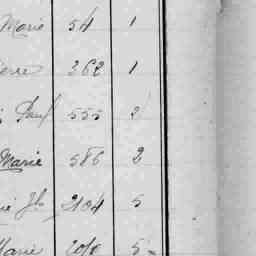 Marie 54 1
erre 362 1
Paul 555 2
Marie 586 2
ie Jh 2104 5
Marie 2010 5